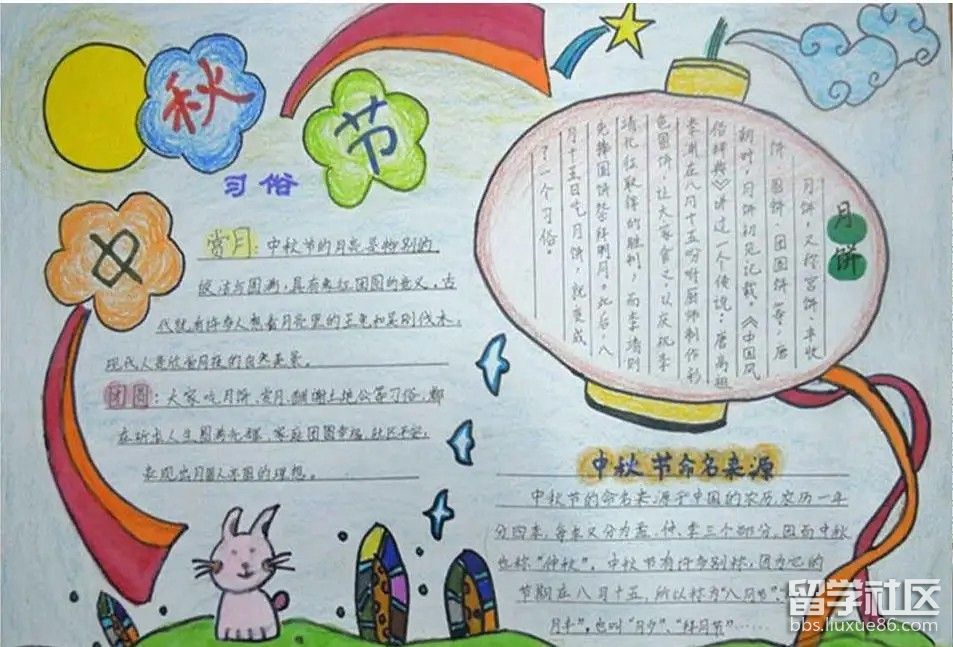 中
秋
节
习俗
赏月：中秋节的月亮是特别的
皎洁与圆满，具有象征团圆的意义，古
代就有许多人想着月亮里的玉兔和吴刚伐木，
现代人喜欣赏月夜的自然美景。
团圆：大家吃月饼、赏月、酬谢土地公等习俗，都
在祈求人生圆满无缺、家庭团圆幸福、社区平安，
表现出月圆人亦圆的理想。
月饼
月饼，又称宫饼、丰收
饼、圆饼、团圆饼等，唐
朝时，月饼初见记载。《中国风
俗辞典》讲过一个传说：唐高祖
李渊在八月十五吩咐厨师制作彩
色圆饼，让大家食之，以庆祝李
靖北征取得的胜利，而李靖则
先捧圆饼祭拜明月。此后，八
月十五日吃月饼，就变成
了一个习俗。
中秋节命名来源
中秋节的命名来源于中国的农历，农历一年
分四季，每季又分为孟、仲、季三个部分，因而中秋
也称“仲秋”。中秋节有许多别称，因为它的
节期在八月十五，所以称为“八月节”、
月半”，也叫“月夕”、“拜月节”……
留学社区
bbs.liuxue86.com